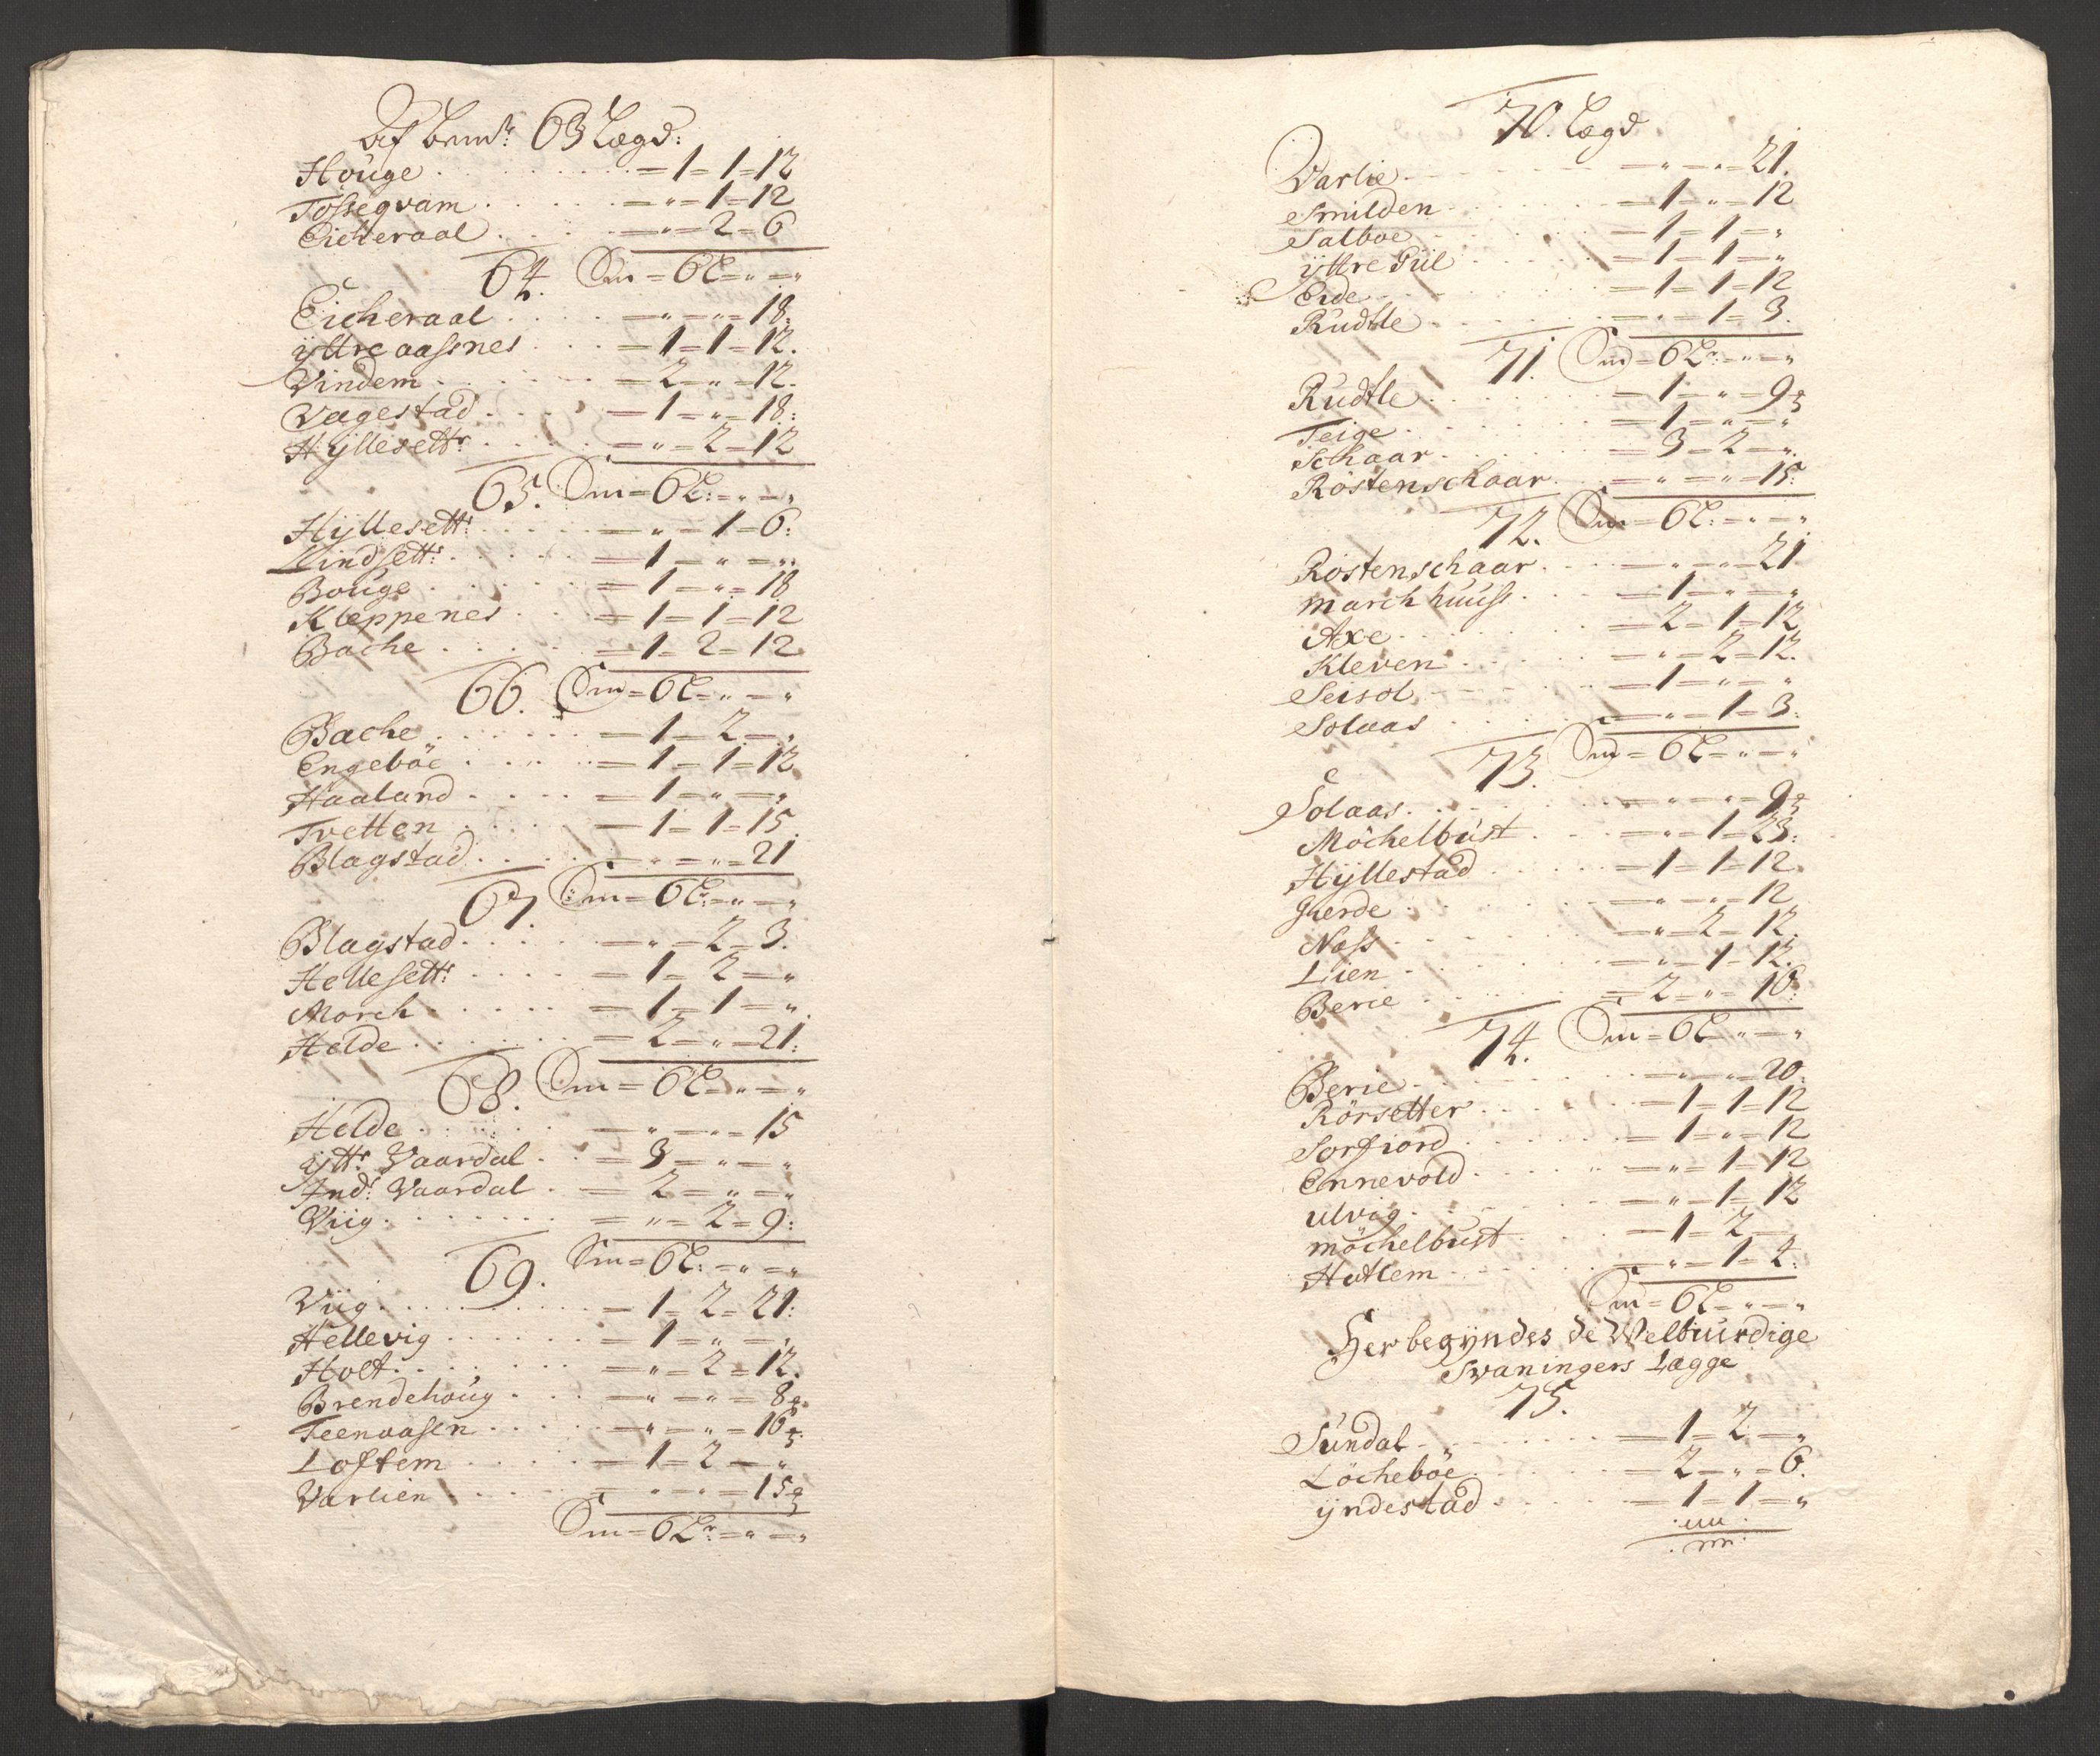 Af bem:te 63 Lægd:
Houge . . . . . = 1 = 1 = 12
Tosseqvam . . . . = " = 1 = 12
Eicheraal . . . . = " = 2 = 6
64. Sm = 6 L = " = "
Eicheraal . . . . = " = " = 18:
ÿttre aassnes . . = 1 = 1 = 12.
Vindem . . . . = 2 = " = 12.
Vagestad . . . = 1 = " = 18:
Hÿllesettr . . . = " = 2 = 12
65. Sm = 6 L: = " = "
Hÿllesettr . . . = " = 1 = 6:
Lindsettr: . . . = 1 = " = "
Bouge . . . . = 1 = " = 18
Kleppenes . . = 1 = 1 = 12
Bache . . . . = 1 = 2 = 12
66. Sm = 6 L = " = "
Bache . . . . = 1 = 2 = "
Engeböe . . . = 1 = 1 = 12
Haaland . . . . = 1 = " = "
Tvetten . . . . = 1 = 1 = 15.
Blagstad . . . . = " = " = 21
67 Sm = 6 L: = " = "
Blagstad . . . . = " = 2 = 3.
Hellesettr . . . . = 1 = 2 = "
Morch . . . . = 1 = 1 = "
Helde . . . . = 2 = " = 21:
68. Sm = 6 L = " = "
Helde . . . . = " = " = 15
ÿttr Vaardal . . = 3 = " = "
Indr: Vaardal . = 2 = " = "
Viig . . . . = " = 2 = 9:
69. Sm = 6 L: = " = "
Viig . . . . = 1 = 2 = 21:
Hellevig . . . . = 1 = " = "
Holt . . . . = " = 2 = 12.
Brendehoug . . . = " = " = 8
Teenaasen . . . . = " = " = 16
Loftem . . . . = 1 = 2 = "
Varlien . . . . = " = " = 15
Sm = 6 Lr: = " = "
70. Lægd
Varlie . . . . = " = " = 21.
Smilden . . . . = 1 = " = 12
Salboe . . . . = 1 = 1 = "
ÿttre Gül . . . . = 1 = 1 = "
Eide . . . . = 1 = 1 = 12
Rudtle . . . . = " = 1 = 3.
71. Sm = 6 Lr: = " = "
Rudtle . . . . = 1 = " = 9
Teige . . . . = 1 = " = "
Schaar . . . . = 3 = 2 = "
Rostenschaar . . = " = " = 15:
72. Sm = 6 L: = " = "
Rostenschaar . . = " = " = 21
marchhuuss . . . = 1 = " = "
Axe . . . . = 2 = 1 = 12
Kleven . . . . = " = 2 = 12.
Seisol . . . . = 1 = " = "
Solaas . . . . = " = 1 = 3:
73. Sm = 6 L = " = "
Solaas . . . . = " = " = 9
Möchelbust . . . = " = 1 = 23:
Hÿllestad . . . . = 1 = 1 = 12.
Gierde . . . . = " = " = 12
Nass . . . . = " = 2 = 12.
Lien . . . . = " = 1 = 12.
Berie . . . . = 2 = " = 10:
74. Sm = 6 L = " = "
Berie . . . . = " = " = 20:
Rörsetter . . . . = 1 = 1 = 12
Sorfiord . . . . = 1 = " = 12
Ennevold . . . . = " = 1 = 12
Ulvig . . . . = " = 1 = 12
möchelbust . . . = 1 = 2 =
Hatlem . . . . = " = 1 = 2:
Sm = 6 L = " = "
Her begÿndes de Welbiurdige
Svaningers Lægge
75.
Sundal . . . . = 1 = 2 = "
Löcheböe . . . . = 2 = " = 6.
ÿndestad . . . . = 1 = 1 = "